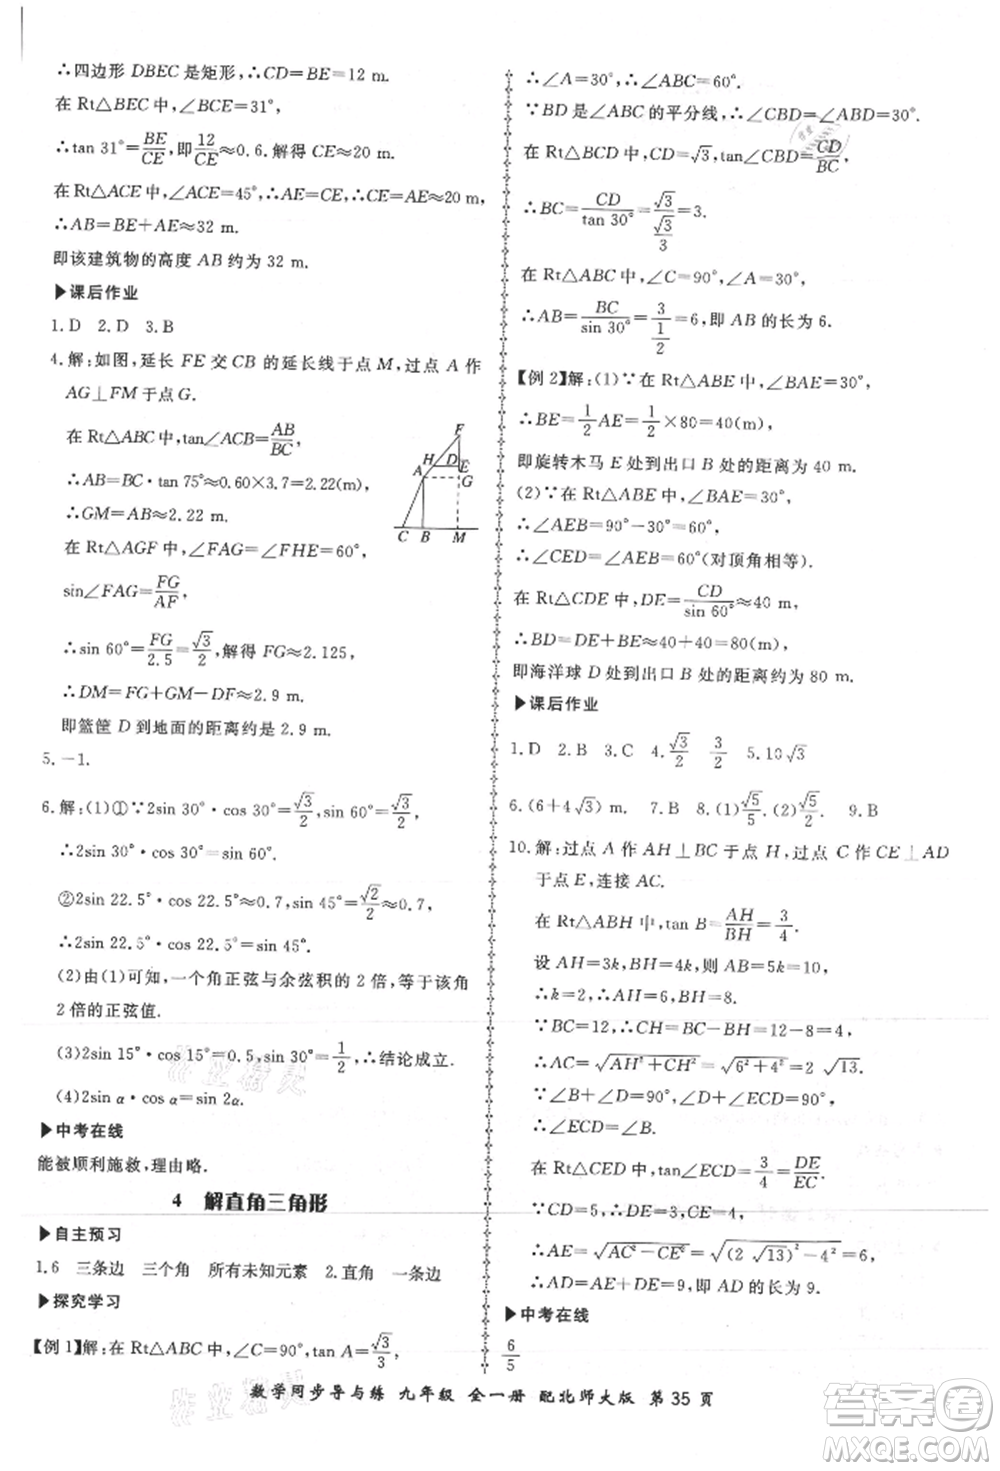 ∴四边形 DBEC 是矩形,∴CD=BE=12 m.
在 Rt△BEC 中,∠BCE=31°,
∴tan 31°=BE/CE,即12/CE≈0.6.解得 CE≈20 m.
在 Rt△ACE 中,∠ACE=45°,∴AE=CE≈20 m,
∴AB=BE+AE≈32 m.
即该建筑物的高度 AB 约为 32 m.
▶课后作业
1.D 2.D 3.B
4.解:如图,延长 FE 交 CB 的延长线于点 M,过点 A 作
AG⊥FM 于点 G.
在 Rt△ABC 中,tan∠ACB=AB/BC,
∴AB=BC·tan 75°≈0.60×3.7=2.22(m).
∴GM=AB≈2.22 m.
在 Rt△AGF 中,∠FAG=∠FHE=60°,
sin∠FAG=FG/AF,
∴sin 60°=FG/2.5=√3/2,解得 FG≈2.125,
∴DM=FG+GM−DF≈2.9 m.
即篮筐 D 到地面的距离约是 2.9 m.
F
H D E
A G
C B M
5.−1.
6.解:(1)①∵2sin 30°·cos 30°=√3/2,sin 60°=√3/2,
∴2sin 30°·cos 30°=sin 60°.
②2sin 22.5°·cos 22.5°≈0.7,sin 45°=√2/2≈0.7,
∴2sin 22.5°·cos 22.5°=sin 45°.
(2)由(1)可知,一个角正弦与余弦积的 2 倍,等于该角
2 倍的正弦值.
(3)2sin 15°·cos 15°=0.5,sin 30°=1/2,∴结论成立.
(4)2sin α·cos α=sin 2α.
▶中考在线
能被顺利施救,理由略.
4 解直角三角形
▶自主预习
1.6 三条边 三个角 所有未知元素 2.直角 一条边
▶探究学习
【例 1】解:在 Rt△ABC 中,∠C=90°,tan A=√3/3,
∴∠A=30°,∴∠ABC=60°.
∵BD 是∠ABC 的平分线,∴∠CBD=∠ABD=30°.
在 Rt△BCD 中,CD=√3,tan∠CBD=CD/BC,
∴BC=CD/tan 30°=√3/(√3/3)=3.
在 Rt△ABC 中,∠C=90°,∠A=30°,
∴AB=BC/sin 30°=3/(1/2)=6,即 AB 的长为 6.
【例 2】解:(1)∵在 Rt△ABE 中,∠BAE=30°,
∴BE=1/2 AE=1/2×80=40(m).
即旋转木马 E 处到出口 B 处的距离为 40 m.
(2)∵在 Rt△ABE 中,∠BAE=30°,
∴∠AEB=90°−30°=60°.
∴∠CED=∠AEB=60°(对顶角相等).
在 Rt△CDE 中,DE=CD/sin 60°≈40 m,
∴BD=DE+BE≈40+40=80(m).
即海洋球 D 处到出口 B 处的距离约为 80 m.
▶课后作业
1.D 2.B 3.C 4.√3/2 3/2 5.10√3
6.(6+4√3) m. 7.B 8.(1)√5/5. (2)√5/2. 9.B
10.解:过点 A 作 AH⊥BC 于点 H,过点 C 作 CE⊥AD
于点 E,连接 AC.
在 Rt△ABH 中,tan B=AH/BH=3/4,
设 AH=3k,BH=4k,则 AB=5k=10,
∴k=2,∴AH=6,BH=8.
∵BC=12,∴CH=BC−BH=12−8=4,
∴AC=√(AH²+CH²)=√(6²+4²)=2√13.
∵∠B+∠BCD=90°,∠BCD+∠ECD=90°,
∴∠ECD=∠B.
在 Rt△CED 中,tan∠ECD=3/4=DE/EC,
∵CD=5,∴DE=3,CE=4,
∴AE=√(AC²−CE²)=√((2√13)²−4²)=6,
∴AD=AE+DE=9,即 AD 的长为 9.
▶中考在线
6/5
数学同步导与练 九年级 全一册 配北师大版 第 35 页
答案圈
MXQE.COM